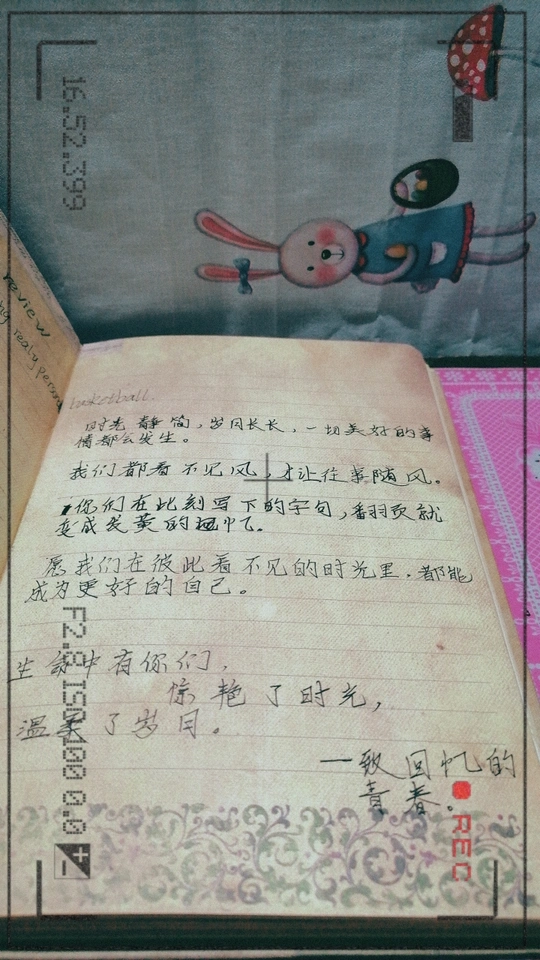 16:52.399
review
basketball.
时光静简，岁月长长，一切美好的事
情都会发生。
我们都看不见风，才让往事随风。
你们在此刻写下的字句，翻羽页就
变成发黄的回忆。
愿我们在彼此看不见的时光里，都能
成为更好的自己。
生命中有你们，
惊艳了时光，
温柔了岁月。
一致回忆的
青春。
F2.8 ISO100 0.0
REC